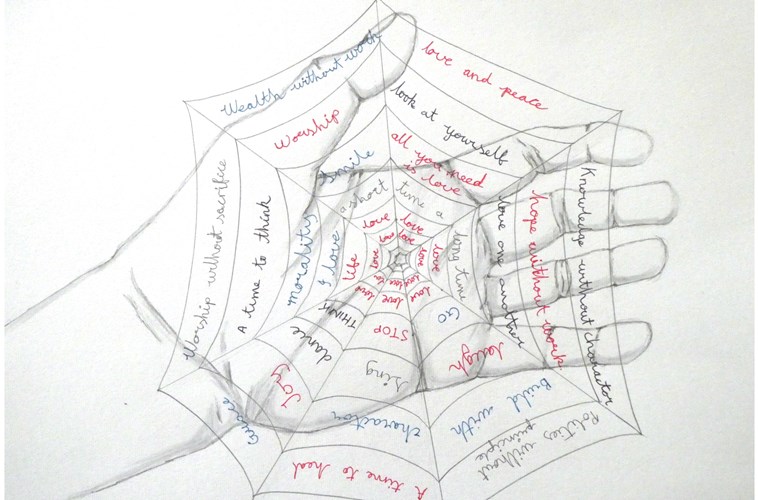 Wealth without work
love and peace
Worship
look at yourself
Smile
all you need
is love
a short
time a
long time
Worship without sacrifice
A time to think
morality
I love
life
love
love
love
love
love
love
love
love
love one another
hope without work
Knowledge without character
THINK
STOP
GO
dance
sing
laugh
Joy
character
Build with
Politics without
principle
A time to heal